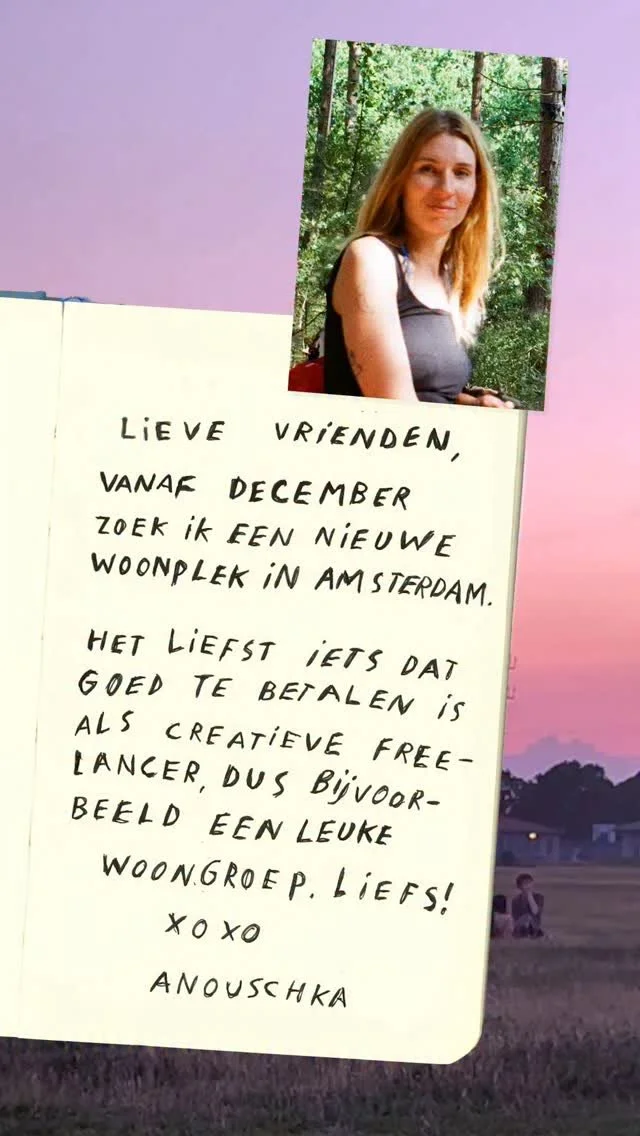 LIEVE VRIENDEN,
VANAF DECEMBER
ZOEK IK EEN NIEUWE
WOONPLEK IN AMSTERDAM.
HET LIEFST IETS DAT
GOED TE BETALEN IS
ALS CREATIEVE FREE-
LANCER, DUS BIJVOOR-
BEELD EEN LEUKE
WOONGROEP. LIEFS!
XOXO
ANOUSCHKA